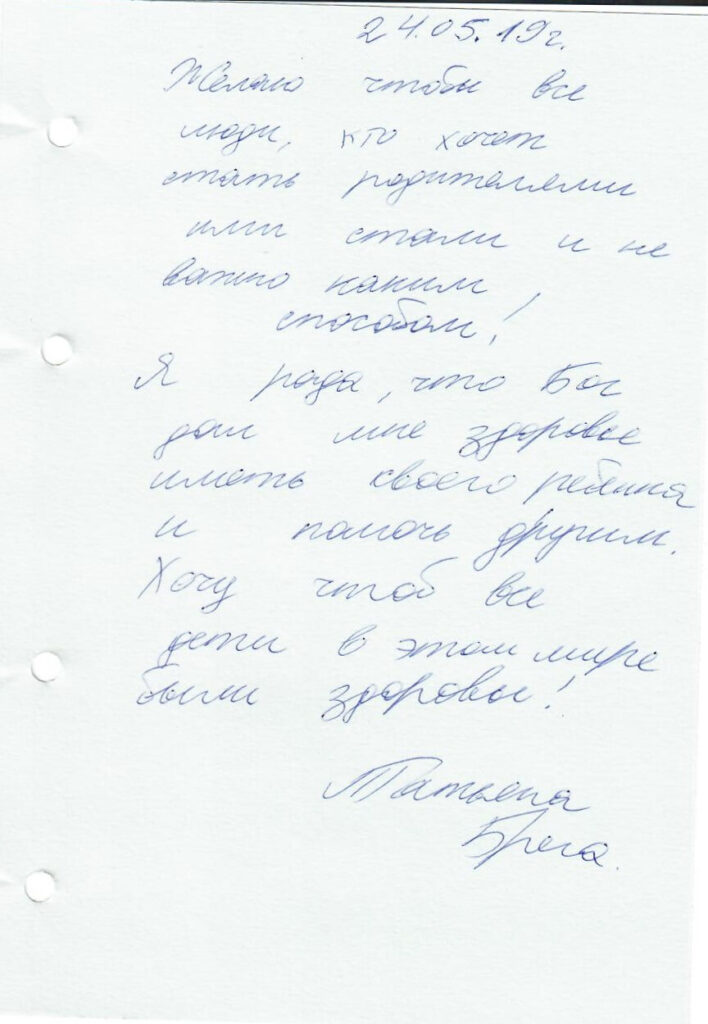 24.05.19г.
Желаю чтобы все
люди, кто хочет
стать родителями
ими стали и не
важно каким,
способом!
Я рада, что Бог
дал мне здоровье
иметь своего ребенка
и помочь другим.
Хочу чтоб все
дети в этом мире
были здоровы!
Татьяна
Брега.